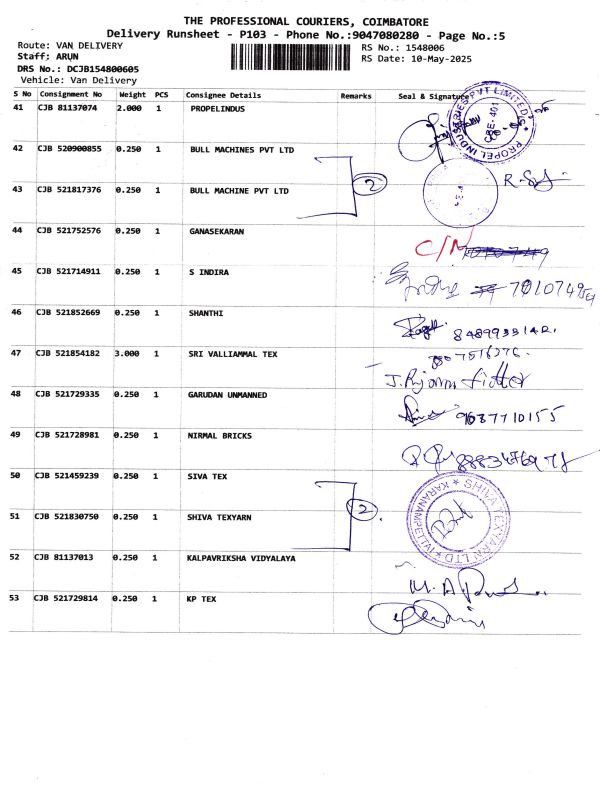 THE PROFESSIONAL COURIERS, COIMBATORE
Delivery Runsheet - P103 - Phone No.:9047080280 - Page No.:5
Route: VAN DELIVERY
RS No.: 1548006
Staff: ARUN
RS Date: 10-May-2025
DRS No.: DCJB154800605
Vehicle: Van Delivery
S No Consignment No Weight PCS Consignee Details Remarks Seal & Signature
41 CJB 81137074 2.000 1 PROPELINDUS
PROPEL INDUSTRIES PVT LIMITED
CBE-401
42 CJB 520900855 0.250 1 BULL MACHINES PVT LTD
2
43 CJB 521817376 0.250 1 BULL MACHINE PVT LTD
44 CJB 521752576 0.250 1 GANASEKARAN
C/M
45 CJB 521714911 0.250 1 S INDIRA
46 CJB 521852669 0.250 1 SHANTHI
47 CJB 521854182 3.000 1 SRI VALLIAMMAL TEX
48 CJB 521729335 0.250 1 GARUDAN UNMANNED
9087710155
49 CJB 521728981 0.250 1 NIRMAL BRICKS
50 CJB 521459239 0.250 1 SIVA TEX
2
SHIVA TEXYARN LTD
51 CJB 521830750 0.250 1 SHIVA TEXYARN
52 CJB 81137013 0.250 1 KALPAVRIKSHA VIDYALAYA
53 CJB 521729814 0.250 1 KP TEX